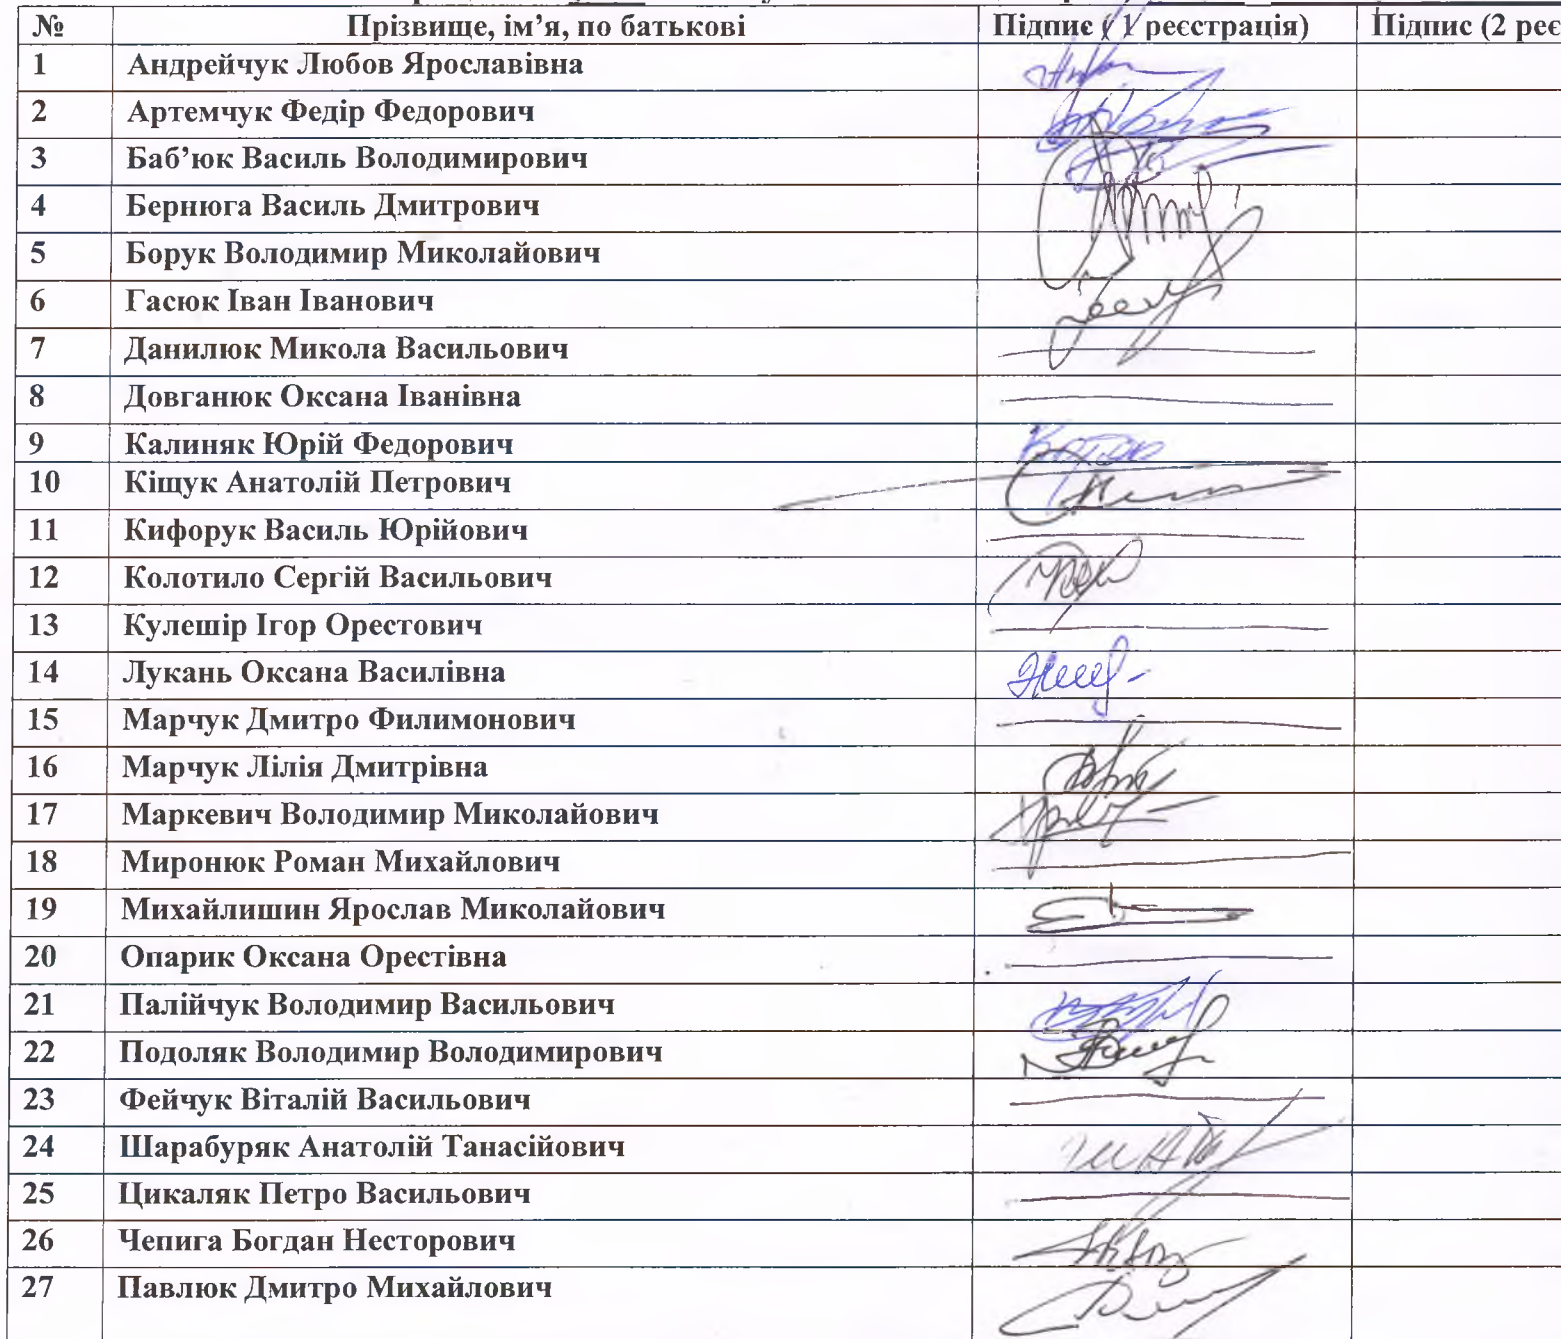 № Прізвище, ім’я, по батькові Підпис ( 1 реєстрація) Підпис (2 реє
1 Андрейчук Любов Ярославівна
2 Артемчук Федір Федорович
3 Баб’юк Василь Володимирович
4 Бернюга Василь Дмитрович
5 Борук Володимир Миколайович
6 Гасюк Іван Іванович
7 Данилюк Микола Васильович
8 Довганюк Оксана Іванівна
9 Калиняк Юрій Федорович
10 Кіщук Анатолій Петрович
11 Кифорук Василь Юрійович
12 Колотило Сергій Васильович
13 Кулешір Ігор Орестович
14 Лукань Оксана Василівна
15 Марчук Дмитро Филимонович
16 Марчук Лілія Дмитрівна
17 Маркевич Володимир Миколайович
18 Миронюк Роман Михайлович
19 Михайлишин Ярослав Миколайович
20 Опарик Оксана Орестівна
21 Палійчук Володимир Васильович
22 Подоляк Володимир Володимирович
23 Фейчук Віталій Васильович
24 Шарабуряк Анатолій Танасійович
25 Цикаляк Петро Васильович
26 Чепига Богдан Несторович
27 Павлюк Дмитро Михайлович